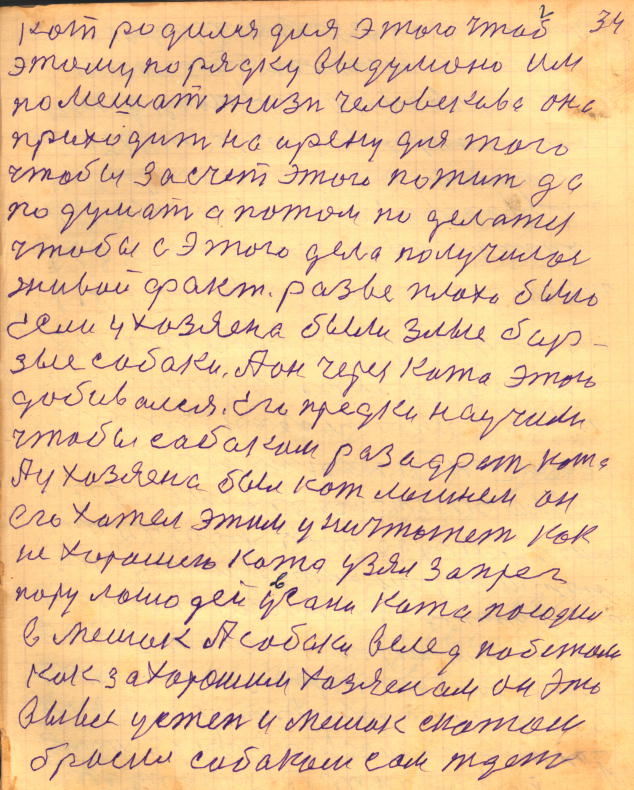 34
кот родился для этого чтоб
этому порядку выдумоно им
помешат жизн человекава она
приходит на арену для того
чтобы засчет этого пожит да
подумат а потом поделатся
чтобы с этого дела получилос
живой факт. разве плохо было
если у хозяена были злые бор-
зые собаки. А он через кота этого
добивался. Его предки научили
чтобы сабаком разадрат кота
А у хозяена был кот лишнем он
его хотел этим уничтожет как
не хорошею кота узял запрег
пару лошодей увсани кота посодил
в мешок А собаки вслед побежали
как за хорошим хозяеном он это
вывел устеп и мешок скотом
бросил собаком сам ждет